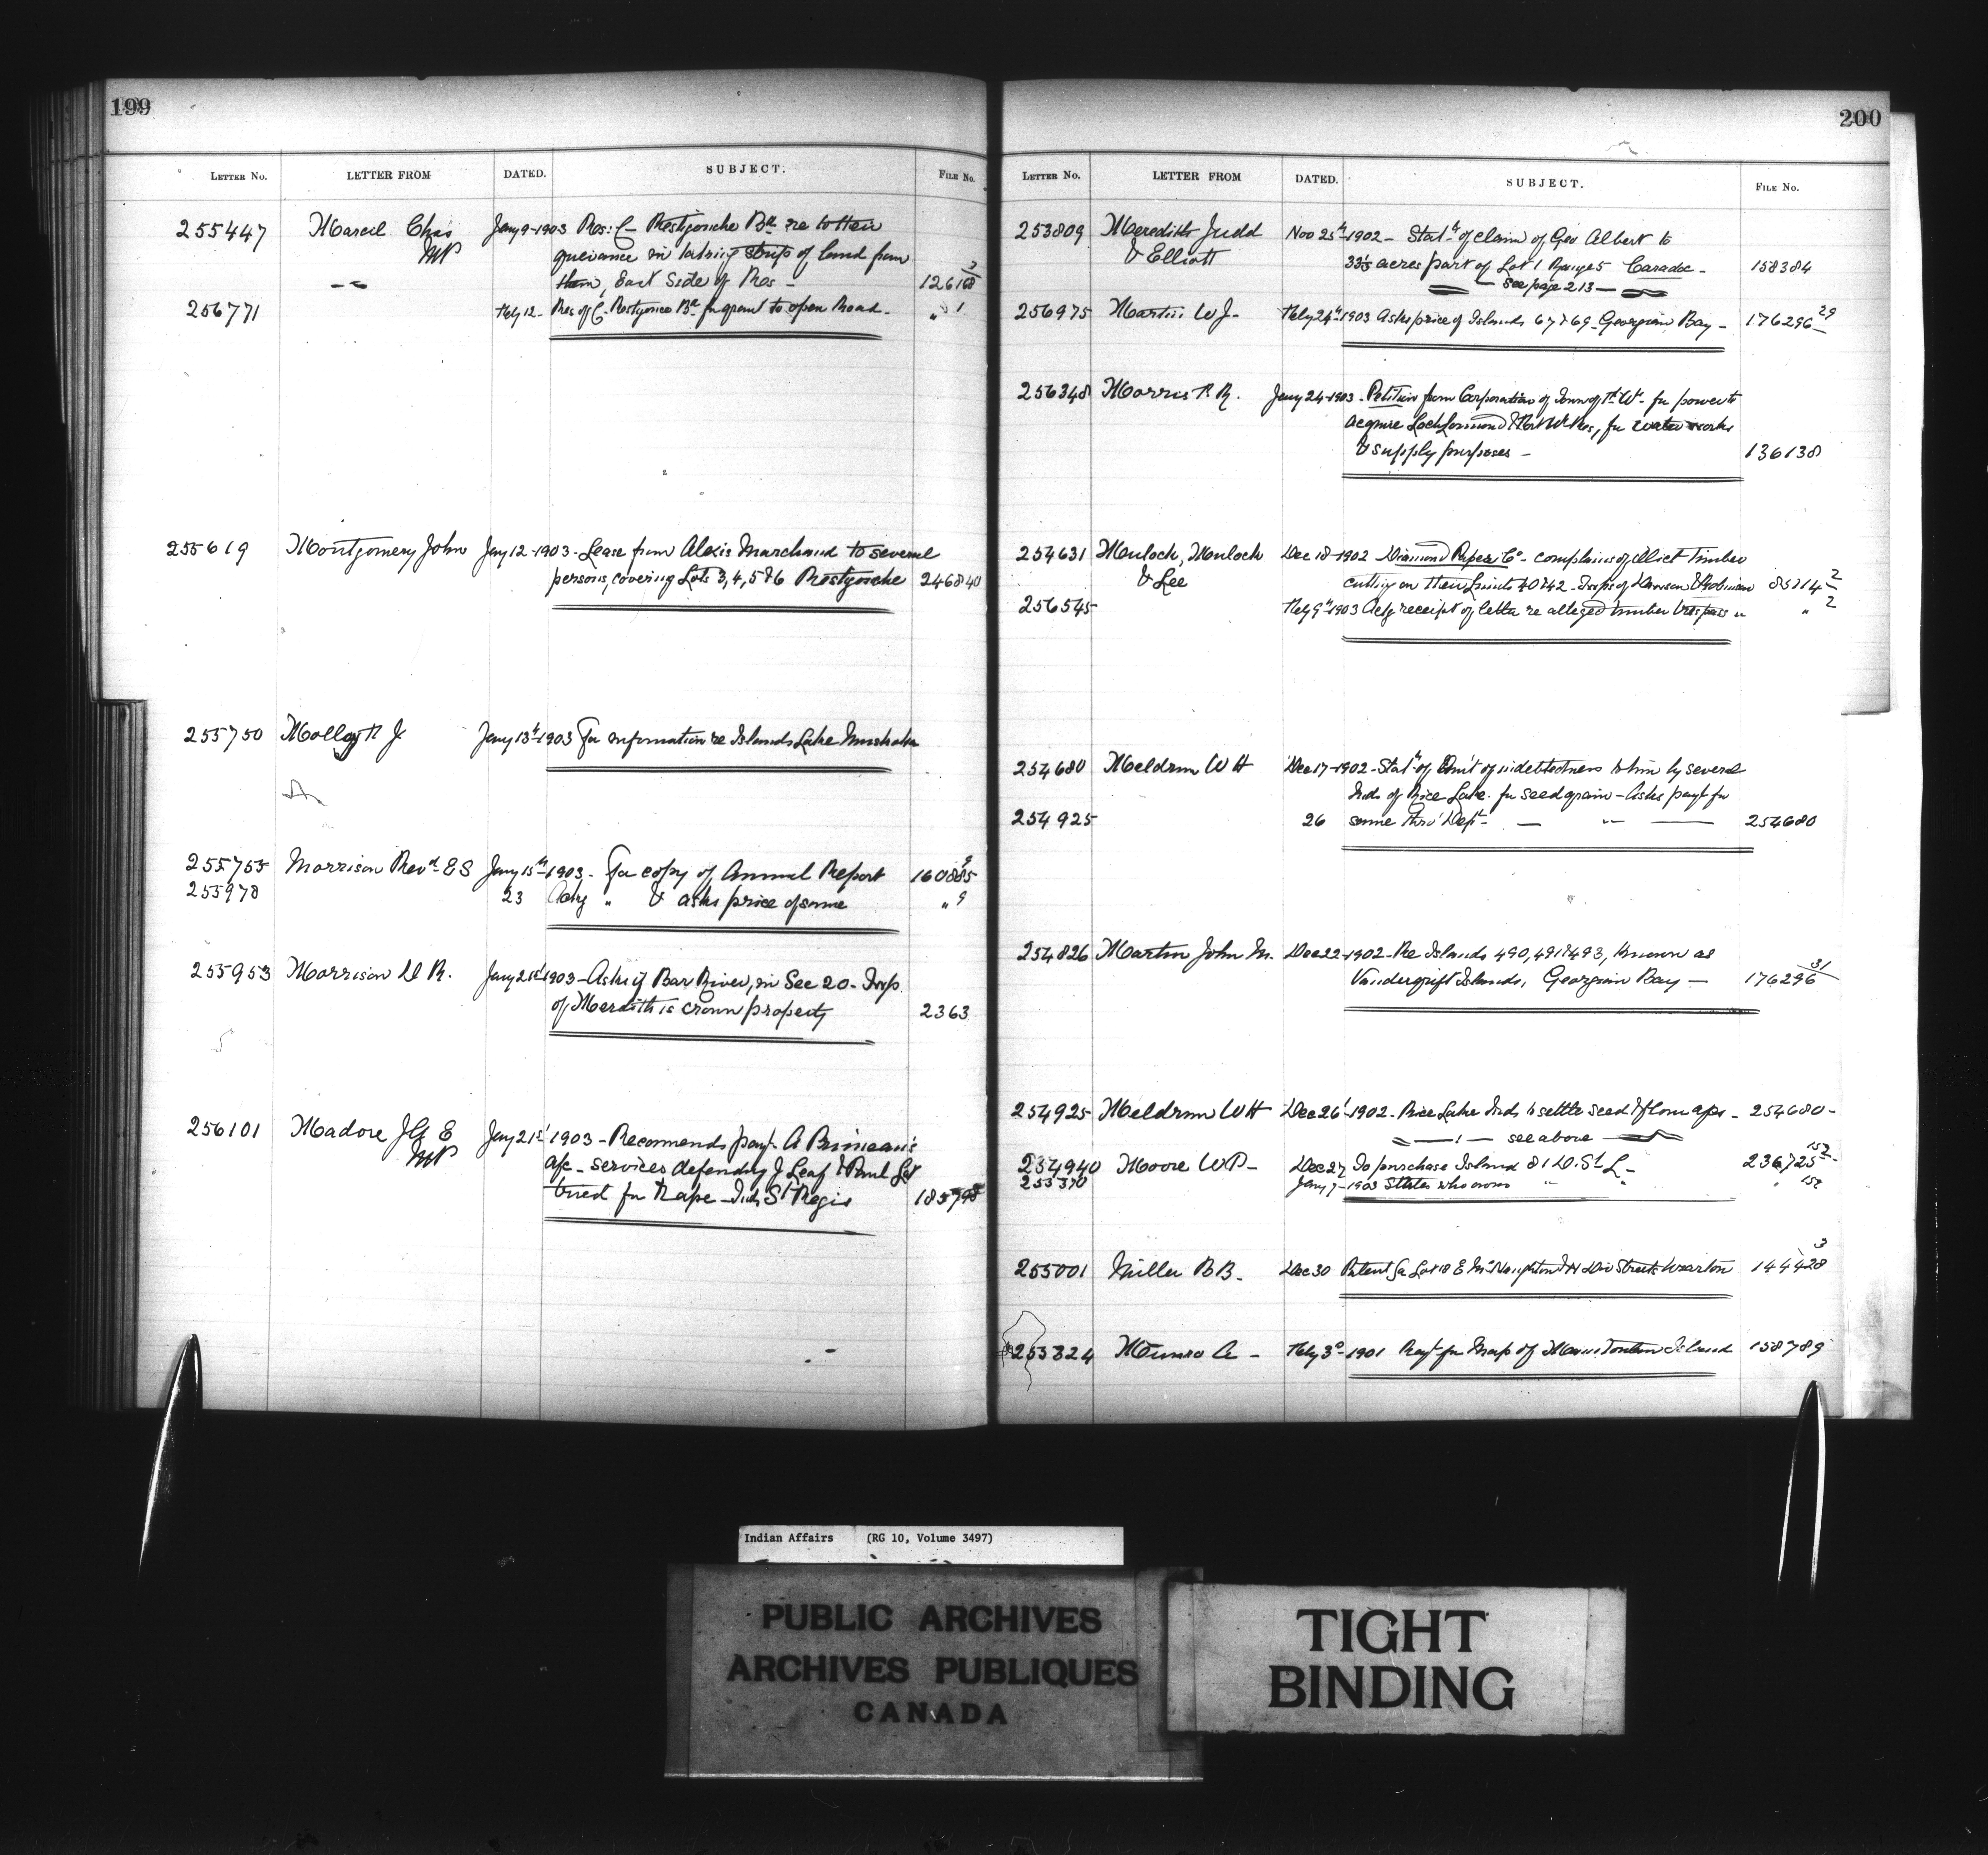 199
LETTER NO. LETTER FROM DATED. SUBJECT. FILE NO.
255447 Marcil Chas Jany 9-1903 Res: C- Restigouche Bd re to their
MP grievance in taking strip of land from
them, East Side of Res - 126168 3
256771 Feby 12- Res of C- Restigouche Bd for grant to open Road - " 1
255619 Montgomery John Jany 12-1903 - Lease from Alexis Marchand to several
persons, covering Lots 3, 4, 5 & 6 Restigouche 246840
255750 Molloy R J Jany 13th-1903 For information re Islands Lake Muskoka
255755 Morrison Revd E S Jany 15th 1903 - For copy of Annual Report 160885 9
255978 23 Ackg " & asks price of same " 9
255953 Morrison D R. Jany 21st 1903 - Asks if Bar River, in Sec 20 - Twp.
of Meredith is crown property 2363
256101 Madore J A E Jany 21st 1903 - Recommends payt. A Brimeau's
MP a/c - services defending J Leaf & Paul
tried for Rape - Inds St Regis
200
LETTER NO. LETTER FROM DATED. SUBJECT. FILE NO.
253809 Meredith Judd Nov 25th 1902 - Statt of claim of Geo Albert to
& Elliott 33⅓ acres part of Lot 1 Range 5 Caradoc - 158384
- see page 213 -
256975 Martin W J - Feby 24th 1903 Asks price of Islands 67 & 69 - Georgian Bay - 176296 29
256348 Morris R R. Jany 24-1903 - Petition from Corporation of Town of Ft. Wm. for power to
acquire Loch Lomond & Fort Wm Res, for water works
& supply purposes - 136138
254631 Mulock, Mulock Dec 18-1902 Diamond Paper Co - complains of illict timber
& Lee cutting on their Limits 40 & 42 - Twps of & Robinson 85714 2
256545 Feby 9th 1903 Ackg receipt of letter re alleged timber trespass " " 2
254680 Meldrum W H Dec 17-1902 - Statt of Amt of indebtedness to him by several
Inds of Rice Lake for seed grain - Asks payt for
254925 26 same thro' Dept - — " — 254680
254826 Martin John M. Dec 22-1902 - Re Islands 490, 491 & 493, known as
Vandergrift Islands, Georgian Bay — 176296 31
254925 Meldrum W H Dec 26-1902 - Rice Lake Inds to settle seed & flour a/cs - 254680 -
see above
254940 Moore W P - Dec 27 To purchase Island 81 D. St L - 236725 152
255370 Jany 7-1903 States who owns " " " 152
255001 Miller B B - Dec 30 Patent for Lot 18 E McNaughton & N Div Streets Wiarton 144428 3
255324 Munro A - Feby 3d-1901 Payt for Map of Manitoulin Island 158789
Indian Affairs (RG 10, Volume 3497)
PUBLIC ARCHIVES
ARCHIVES PUBLIQUES
CANADA
TIGHT
BINDING